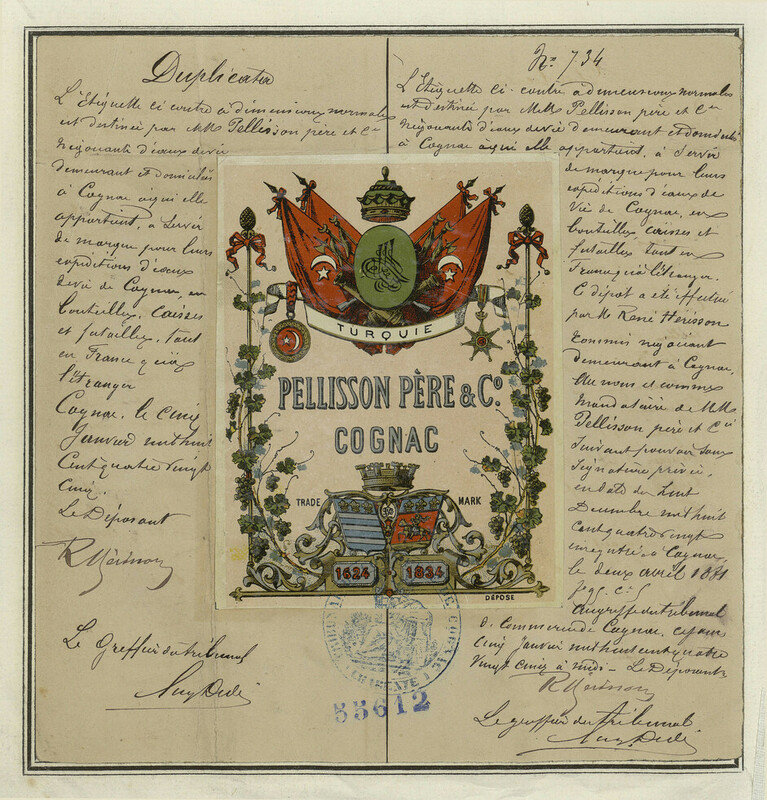 Duplicata
L'Etiquette ci contre à dimensions normales
est destinée par MM Pellisson père et Cie
négociants d'eaux de vie
demeurant et domiciliés
à Cognac à qui elle
appartient, à servir
de marque pour leurs
expéditions d'eaux
de vie de Cognac, en
bouteilles, caisses
et futailles, tant
en France qu'à
l'étranger
Cognac, le cinq
Janvier mil huit
cent quatre vingt
cinq.
Le Déposant
R Hérisson
Le Greffier du tribunal
No 734
L'Etiquette ci-contre à dimensions normales
est destinée par MM Pellisson père et Cie
négociants d'eaux de vie demeurant et domiciliés
à Cognac à qui elle appartient, à servir
de marque pour leurs
expéditions d'eaux de
vie de Cognac, en
bouteilles caisses et
futailles tant en
France qu'à l'étranger.
Ce dépôt a été effectué
par M René Hérisson
commis négociant
demeurant à Cognac,
au nom et comme
mandataire de MM
Pellisson père et Cie
suivant pouvoir sous
signature privée,
en date du huit
Décembre mil huit
cent quatre vingt
enregistré à Cognac,
le deux avril 1881
au greffe du tribunal
de Commerce de Cognac, ce jour
cinq Janvier mil huit cent quatre
vingt cinq à midi - Le Déposant
R Hérisson
Le greffier du tribunal
TURQUIE
PELLISSON PÈRE & Co.
COGNAC
TRADE MARK
1624 1834
DÉPOSÉ
55612